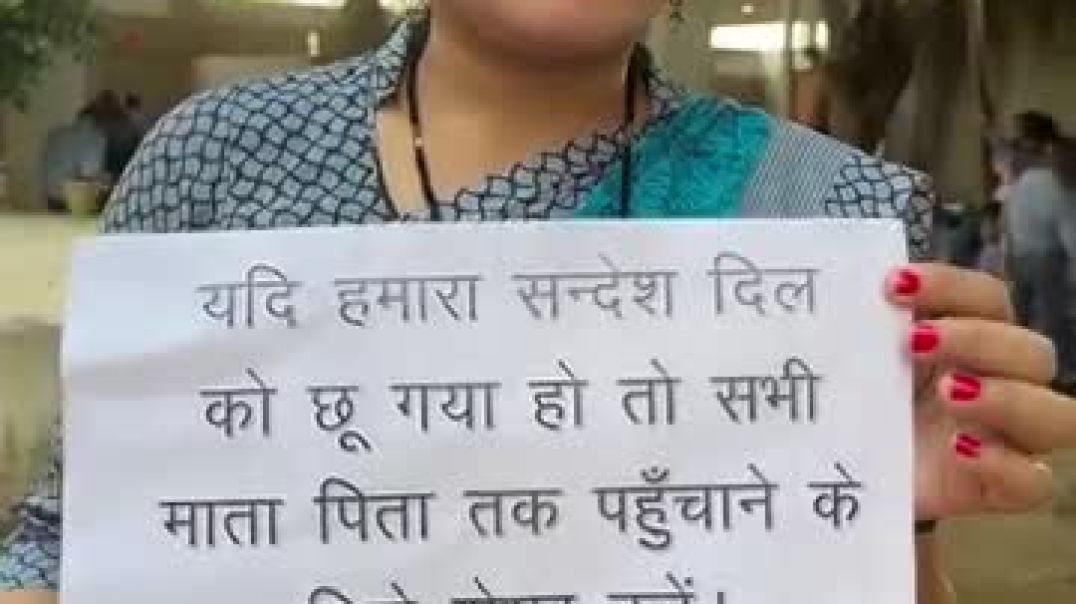 यदि हमारा सन्देश दिल
को छू गया हो तो सभी
माता पिता तक पहुँचाने के